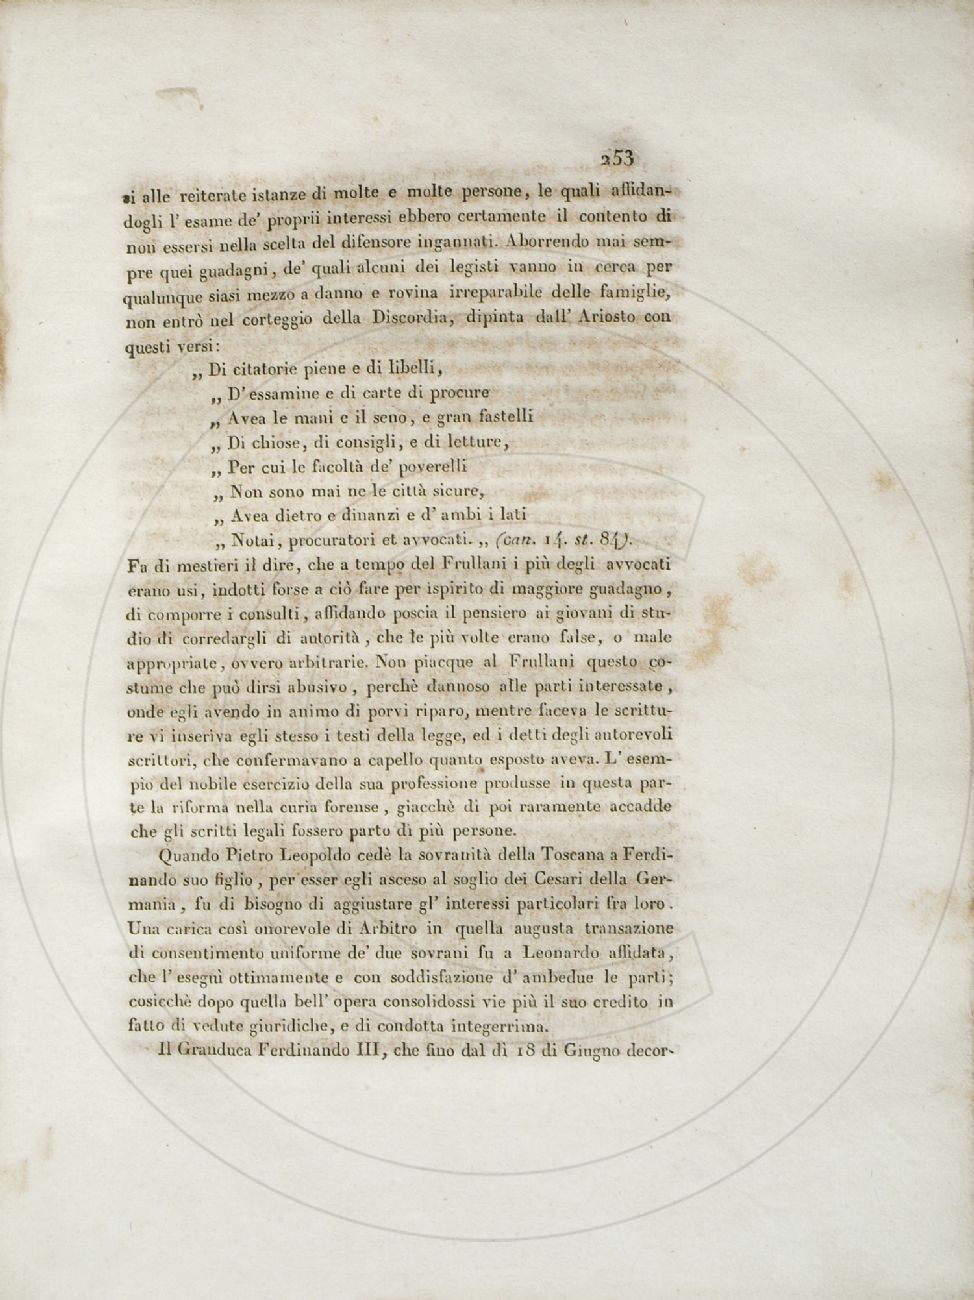 253
si alle reiterate istanze di molte e molte persone, le quali affidan-
dogli l' esame de' proprii interessi ebbero certamente il contento di
non essersi nella scelta del difensore ingannati. Aborrendo mai sem-
pre quei guadagni, de' quali alcuni dei legisti vanno in cerca per
qualunque siasi mezzo a danno e rovina irreparabile delle famiglie,
non entrò nel corteggio della Discordia, dipinta dall' Ariosto con
questi versi:
„ Di citatorie piene e di libelli,
„ D' essamine e di carte di procure
„ Avea le mani e il seno, e gran fastelli
„ Di chiose, di consigli, e di letture,
„ Per cui le facoltà de' poverelli
„ Non sono mai ne le città sicure,
„ Avea dietro e dinanzi e d' ambi i lati
„ Notai, procuratori et avvocati. ,, (can. 14. st. 84).
Fa di mestieri il dire, che a tempo del Frullani i più degli avvocati
erano usi, indotti forse a ciò fare per ispirito di maggiore guadagno,
di comporre i consulti, affidando poscia il pensiero ai giovani di stu-
dio di corredargli di autorità, che le più volte erano false, o male
appropriate, ovvero arbitrarie. Non piacque al Frullani questo co-
stume che può dirsi abusivo, perchè dannoso alle parti interessate,
onde egli avendo in animo di porvi riparo, mentre faceva le scrittu-
re vi inseriva egli stesso i testi della legge, ed i detti degli autorevoli
scrittori, che confermavano a capello quanto esposto aveva. L' esem-
pio del nobile esercizio della sua professione produsse in questa par-
te la riforma nella curia forense, giacchè di poi raramente accadde
che gli scritti legali fossero parto di più persone.
Quando Pietro Leopoldo cedè la sovranità della Toscana a Ferdi-
nando suo figlio, per esser egli asceso al soglio dei Cesari della Ger-
mania, fu di bisogno di aggiustare gl' interessi particolari fra loro.
Una carica così onorevole di Arbitro in quella augusta transazione
di consentimento uniforme de' due sovrani fu a Leonardo affidata,
che l' eseguì ottimamente e con soddisfazione d' ambedue le parti;
cosicchè dopo quella bell' opera consolidossi vie più il suo credito in
fatto di vedute giuridiche, e di condotta integerrima.
Il Granduca Ferdinando III, che fino dal dì 18 di Giugno decor-